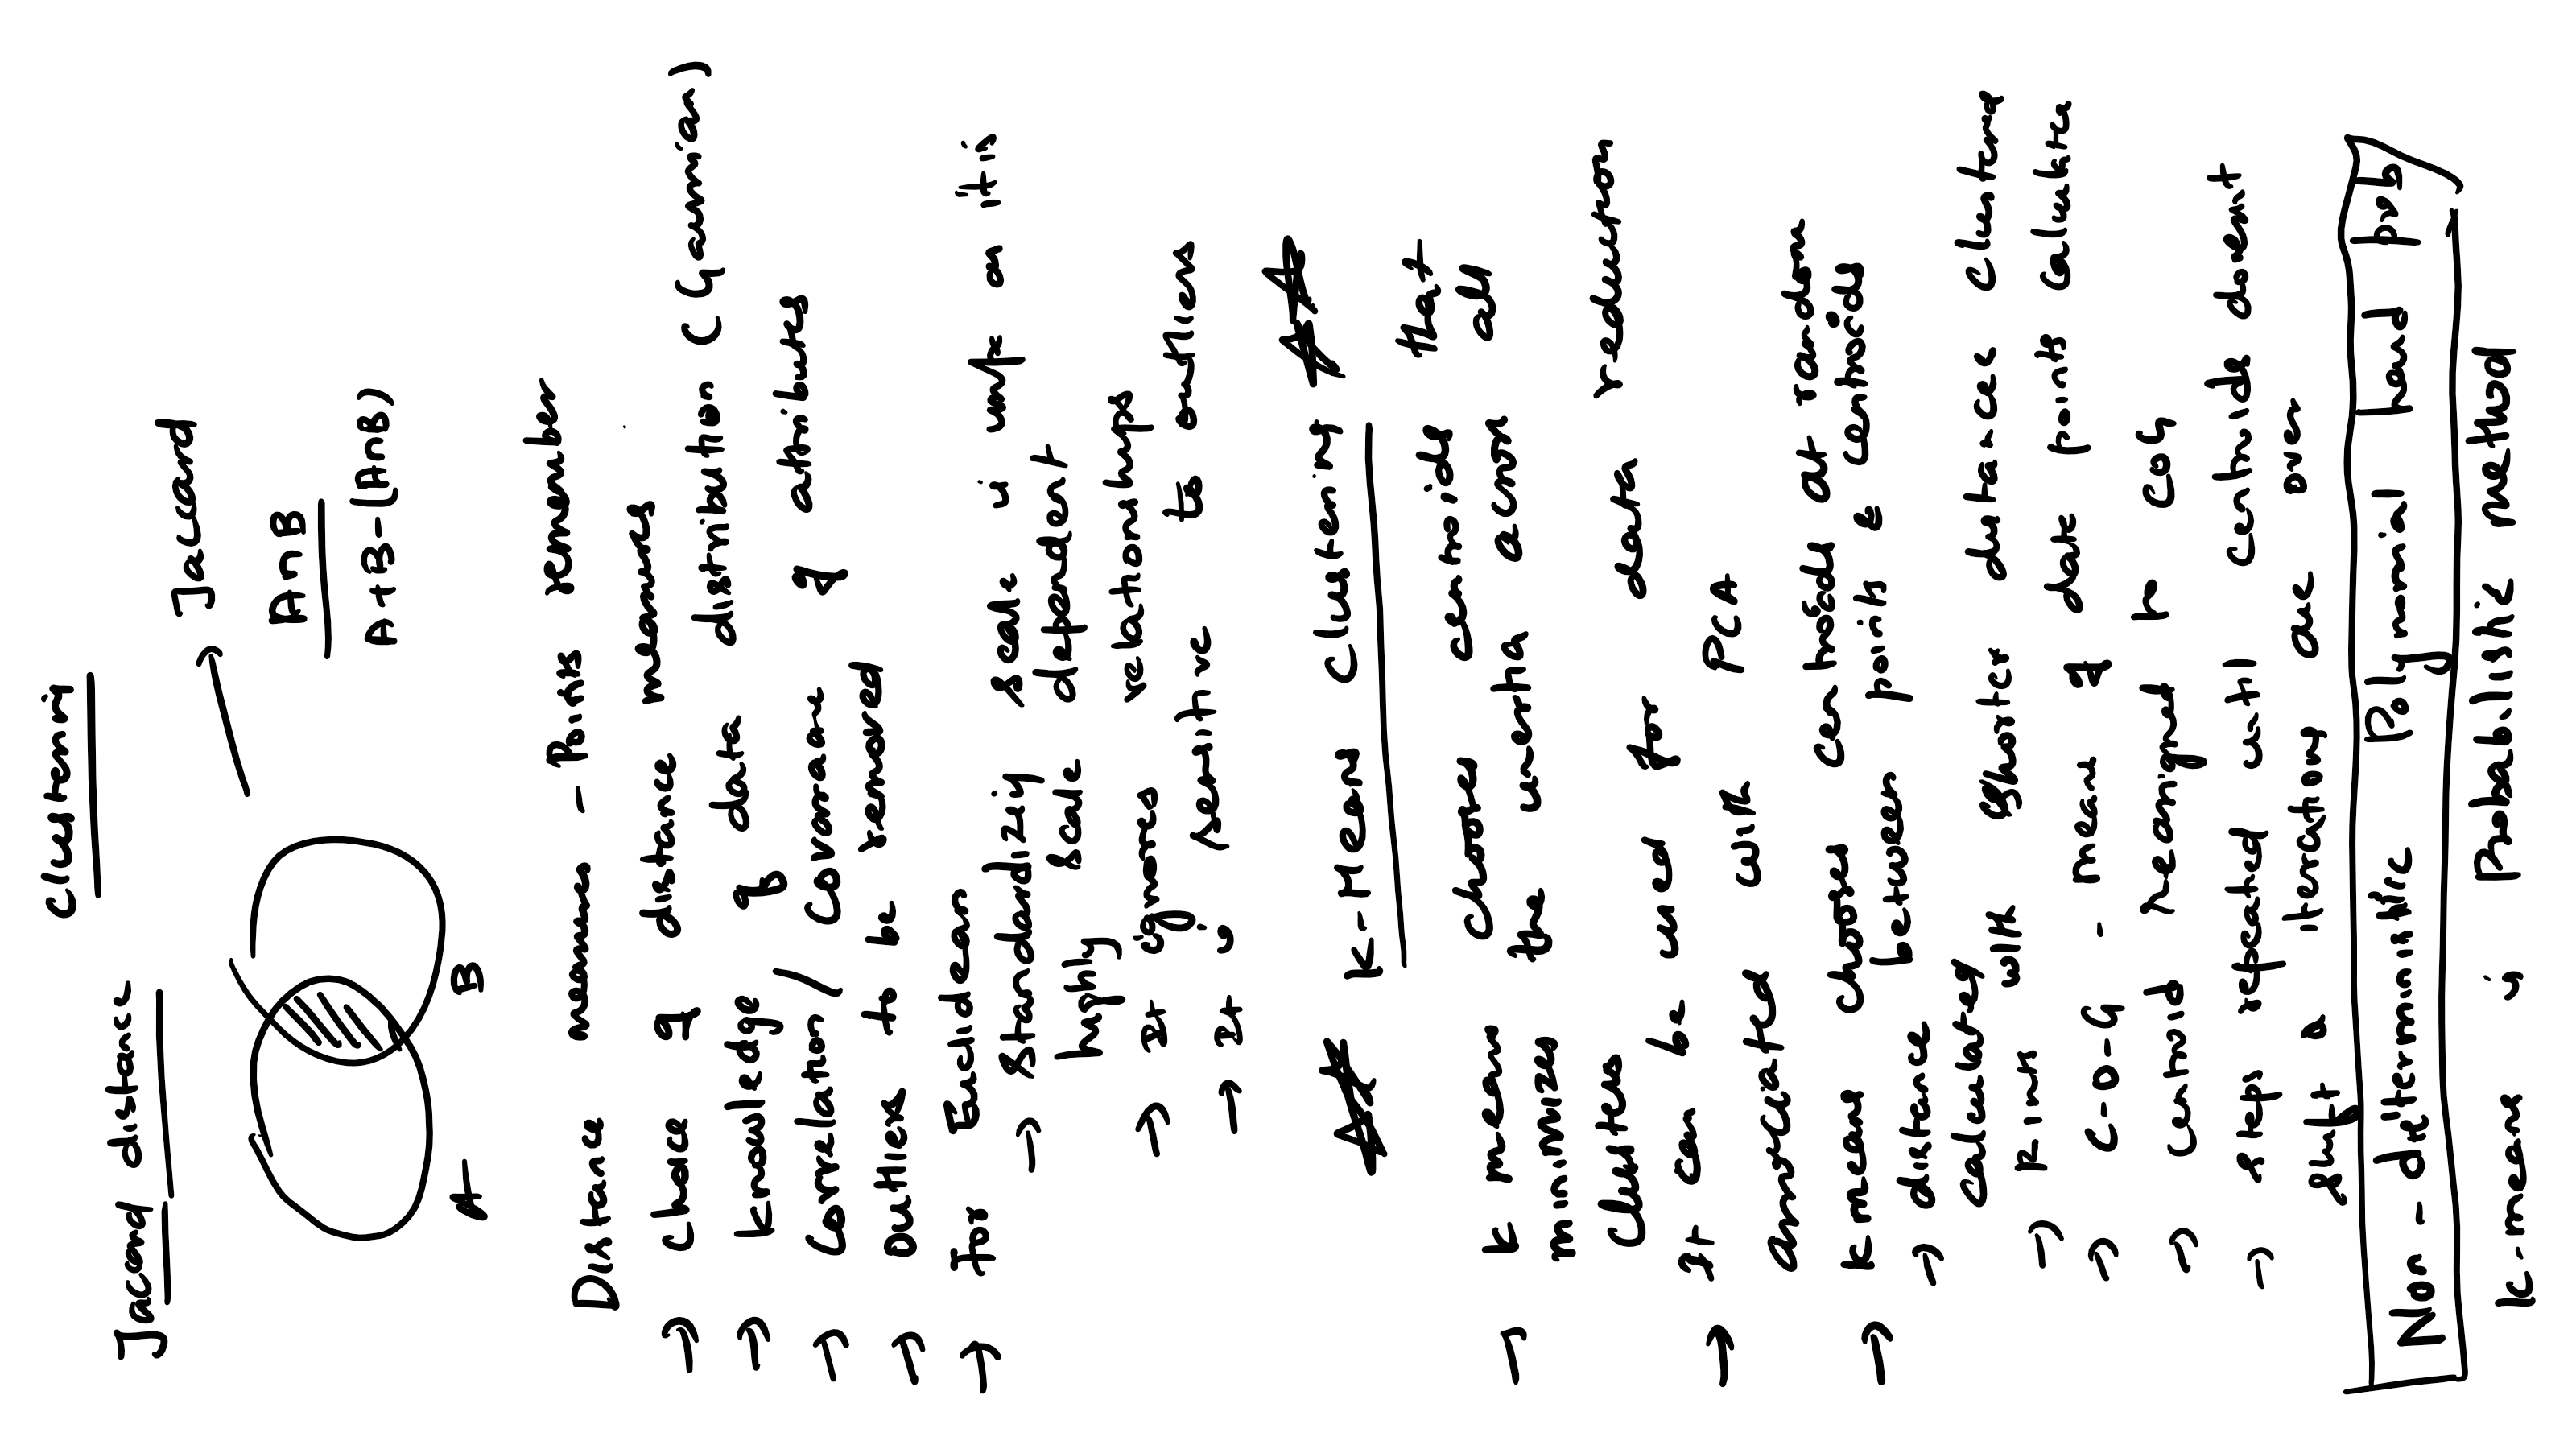 Clustering
Jaccard distance
→ Jaccard
A∩B
A+B-(A∩B)
A
B
Distance measures - Points remember
→ Choice of distance measures
→ Knowledge of data distribution (Gaussian)
→ Correlation / Covariance of attributes
→ Outliers to be removed
→ for Euclidean
→ Standardizig scale is imp as it is
highly scale dependent
→ It ignores relationships
→ It is sensitive to outliers
K-Means Clustering
→ K means chooses centroids that
minimizes the inertia across all
clusters
→ It can be used for data reduction
associated with PCA
→ K means chooses centroids at random
→ distance between points & centroids
calculated
→ Points with shorter distances clustered
→ C-O-G - means of data points calculated
→ Centroid reassigned to COG
→ steps repeated until centroids doesnt
shift & iterations are over
Non-deterministic Polynomial hard prob
K-means is Probabilistic method